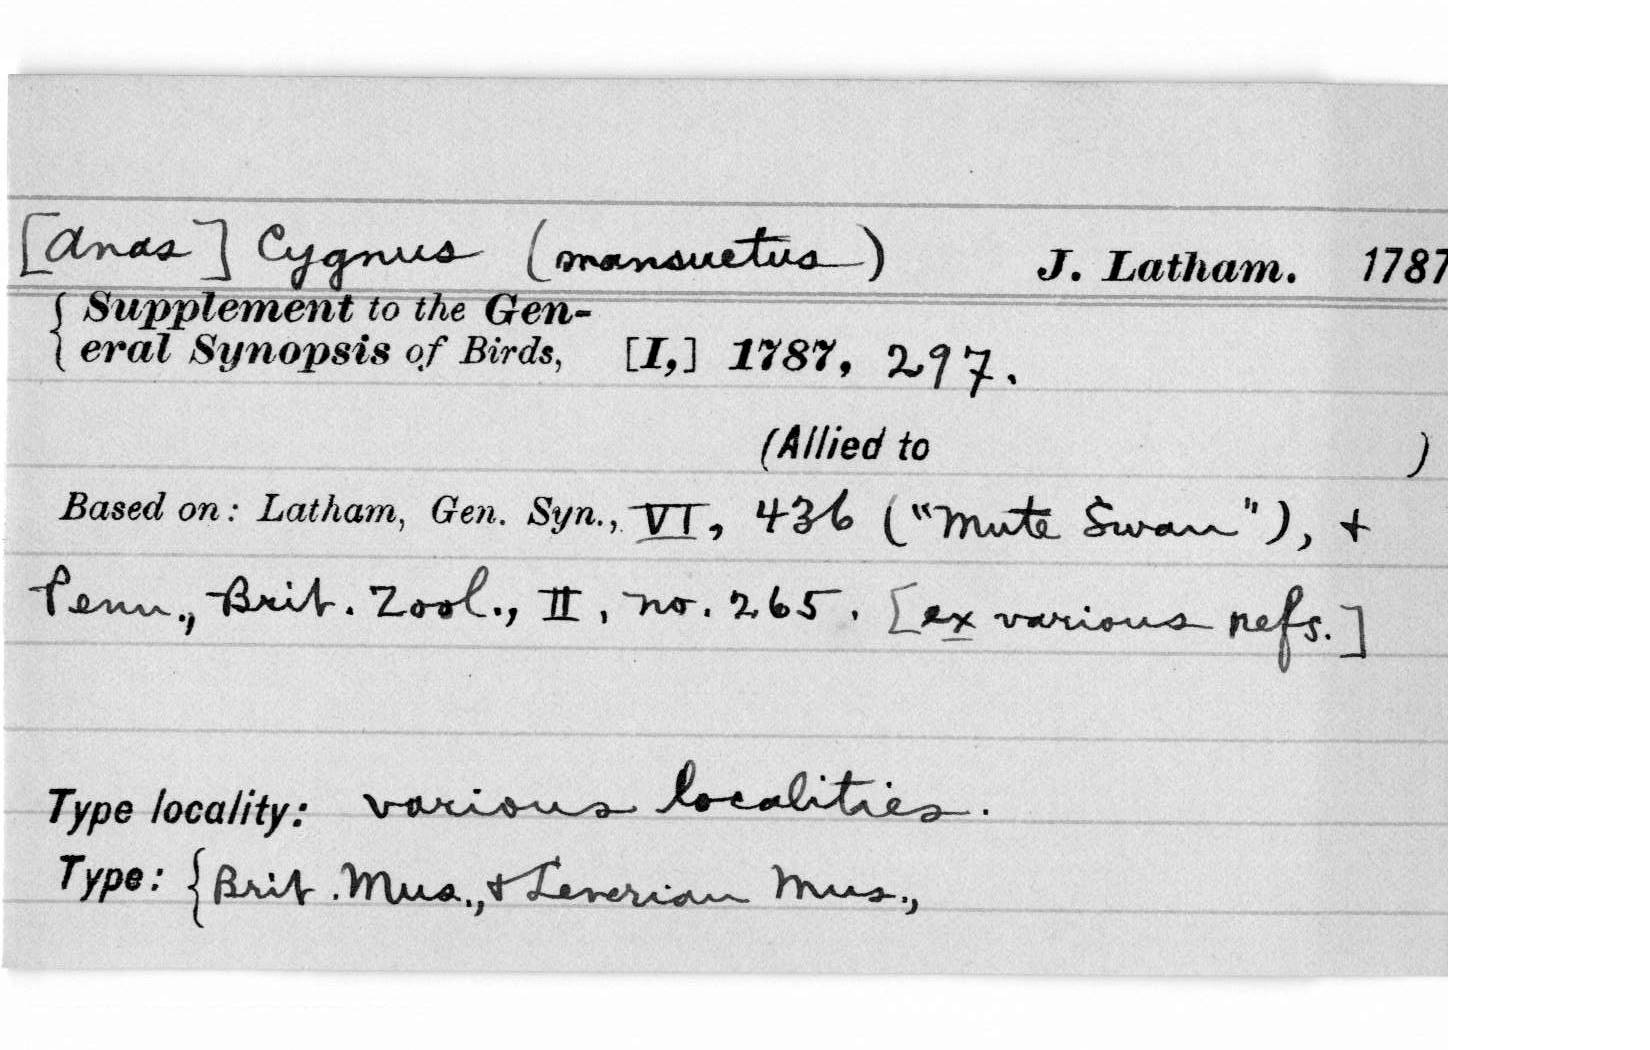 [Anas] Cygnus (mansuetus) J. Latham. 1787
{Supplement to the Gen-
eral Synopsis of Birds, [I,] 1787, 297.
(Allied to )
Based on: Latham, Gen. Syn., VI, 436 ("Mute Swan"), +
Penn., Brit. Zool., II, no. 265. [ex various refs.]
Type locality: various localities.
Type: {Brit. Mus., + Leverian Mus.,